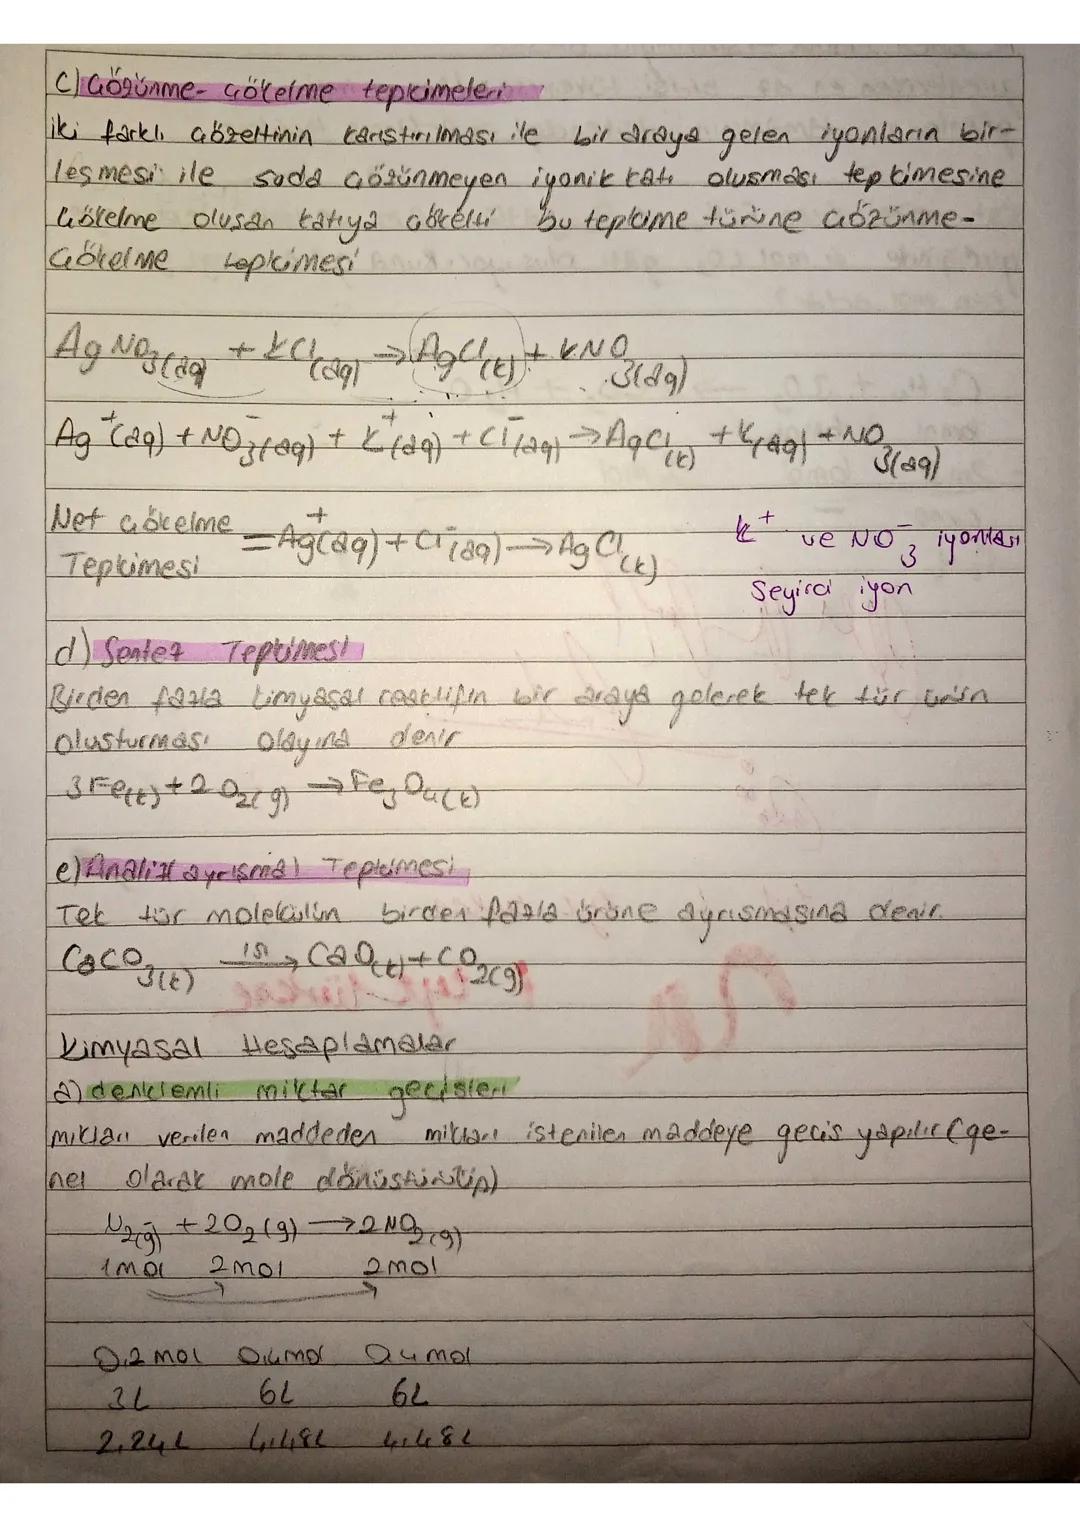 c) Çözünme- çökelme tepkimeleri
iki farklı çözeltinin karıstırılması ile bir araya gelen iyonların bir-
leşmesi ile suda çözünmeyen iyonik katı olusması tepkimesine
çökelme oluşan katıya çökelti bu tepkime türüne çözünme-
çökelme tepkimesi
AgNO3(aq) + KCl(aq) → AgCl(k) + KNO3(aq)
Ag+(aq) + NO3-(aq) + K+(aq) + Cl-(aq) → AgCl(k) + K(aq) + NO3(aq)
Net çökelme
Tepkimesi = Ag+(aq) + Cl-(aq) → AgCl(k)
K+ ve NO3- iyonları
Seyirci iyon
d) Sentez Tepkimesi
Birden fazla kimyasal reaktifin bir araya gelerek tek tür ürün
olusturması olayına denir
3Fe(k) + 2O2(g) → Fe3O4(k)
e) Analiz( ayrışma) Tepkimesi
Tek tür molekülün birden fazla ürüne ayrısmasına denir.
CaCO3(k) ısı→ CaO(k) + CO2(g)
Kimyasal Hesaplamalar
a) denklemli miktar geçişleri
miktarı verilen maddeden miktarı istenilen maddeye geçis yapılır (ge-
nel olarak mole dönüstürülüp)
N2(g) + 2O2(g) → 2NO2(g)
1mol 2mol 2mol
0,2 mol 0,4mol 0,4 mol
3L 6L 6L
2,24L 4,48L 4,48L